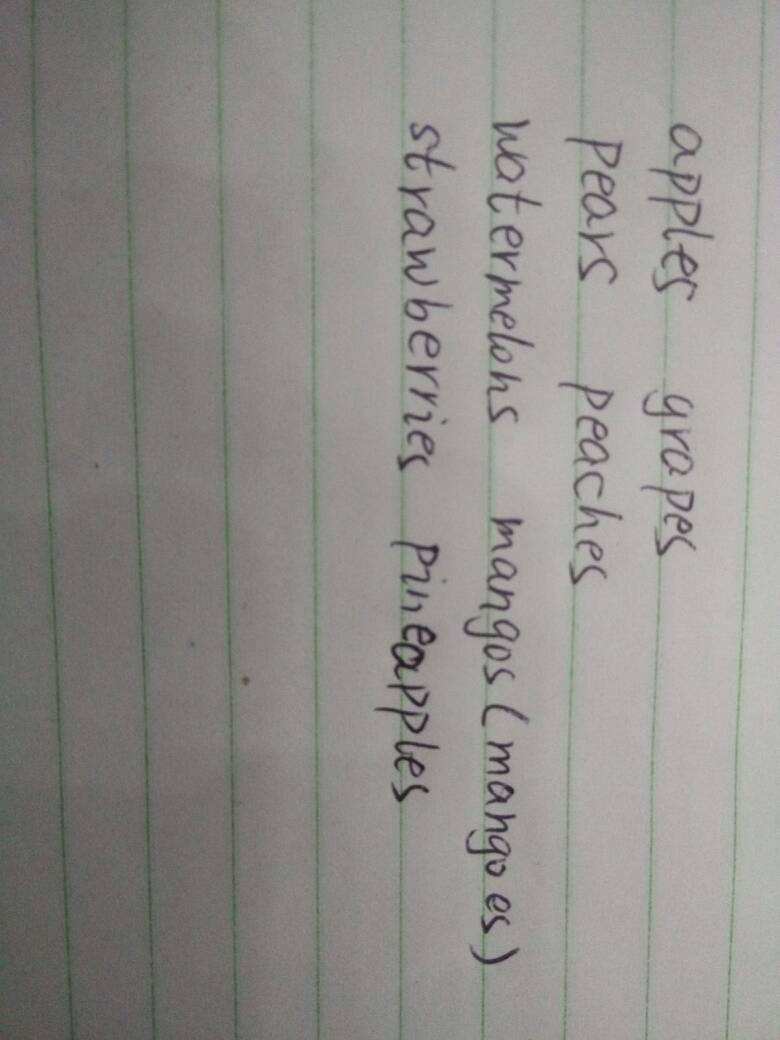 apples grapes
pears peaches
watermelons mangos (mangoes)
strawberries pineapples